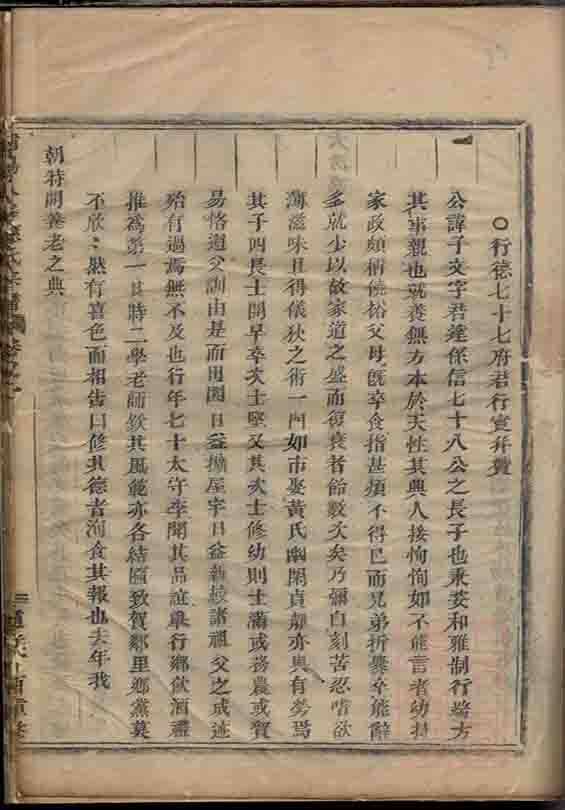 ○行德七十七府君行實并贊
公諱子文字君達係信七十八公之長子也秉姿和雅制行端方
其事親也就養無方本於天性其與人接恂恂如不能言者幼持
家政頗稱饒裕父母既卒食指甚煩不得已而兄弟折爨牟能辭
多就少以故家道之盛而復衰者飴數次矣乃彌自刻苦忍嗜欲
薄滋味且得儀狄之術一門如市娶黃氏幽閑貞靜亦與有勞焉
其子四長士開早卒次士堅又其次士修幼則士滿或務農或貿
易恪遵父訓由是而田園日益拗屋宇日益新較諸祖父之成迹
殆有過焉無不及也行年七十太守李聞其品誼舉行鄉飲酒禮
推為第一且時二學老師欽其風範亦各結匾致賀鄰里鄉黨莫
不欣欣然有喜色而相告曰修其德者洵食其報也去年我
朝特開養老之典